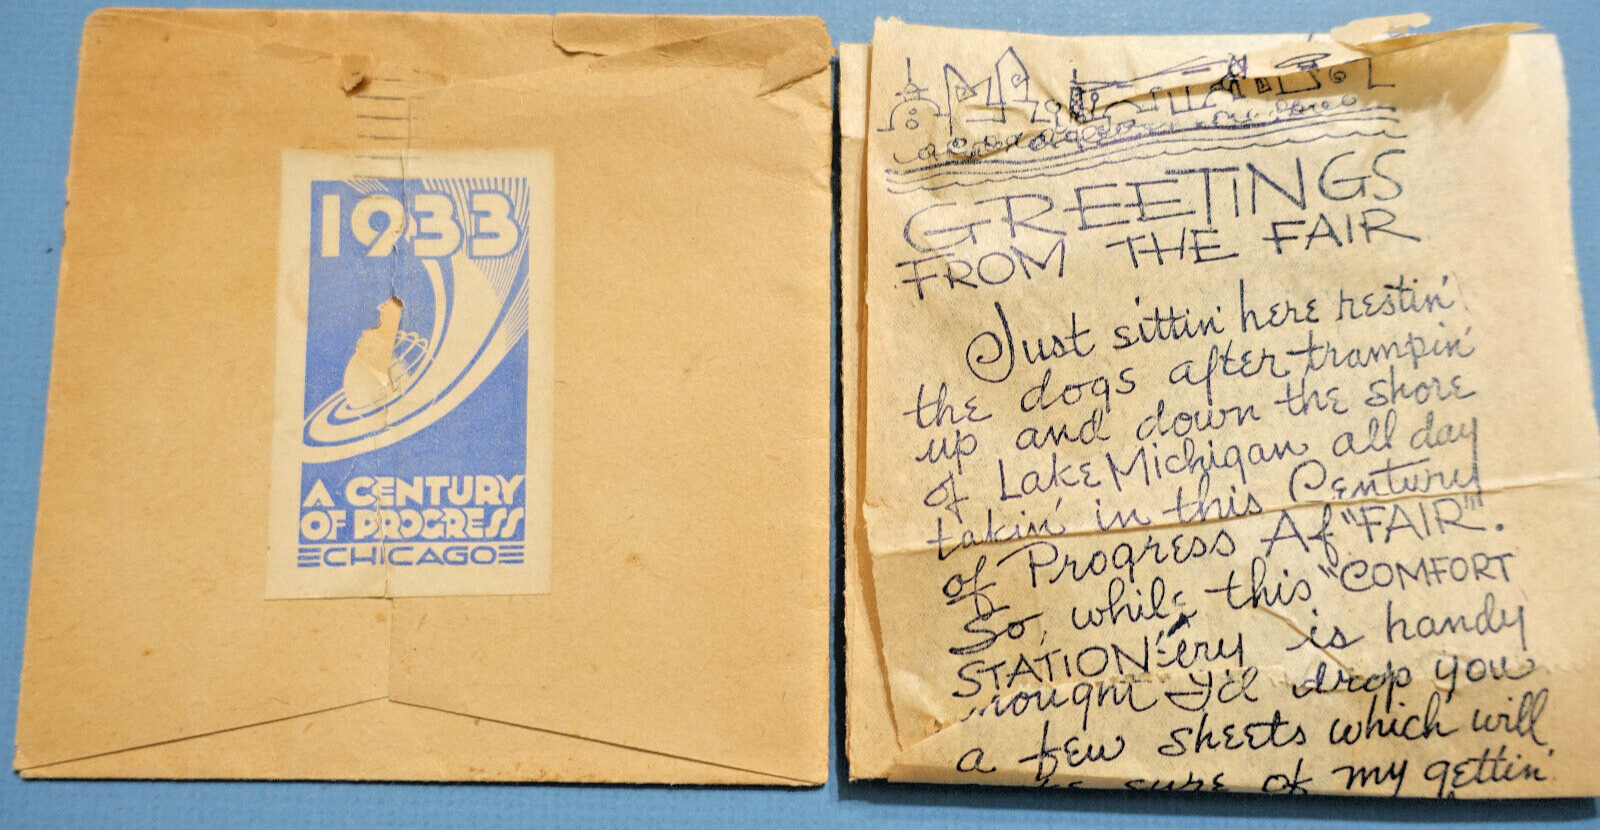 1933
A CENTURY
OF PROGRESS
CHICAGO
GREETINGS
FROM THE FAIR
Just sittin' here restin'
the dogs after trampin'
up and down the shore
of Lake Michigan all day
takin' in this Century
of Progress Af "FAIR".
So, while this "COMFORT
STATION"ery is handy
I'd drop you
a few sheets which will
sure of my gettin'